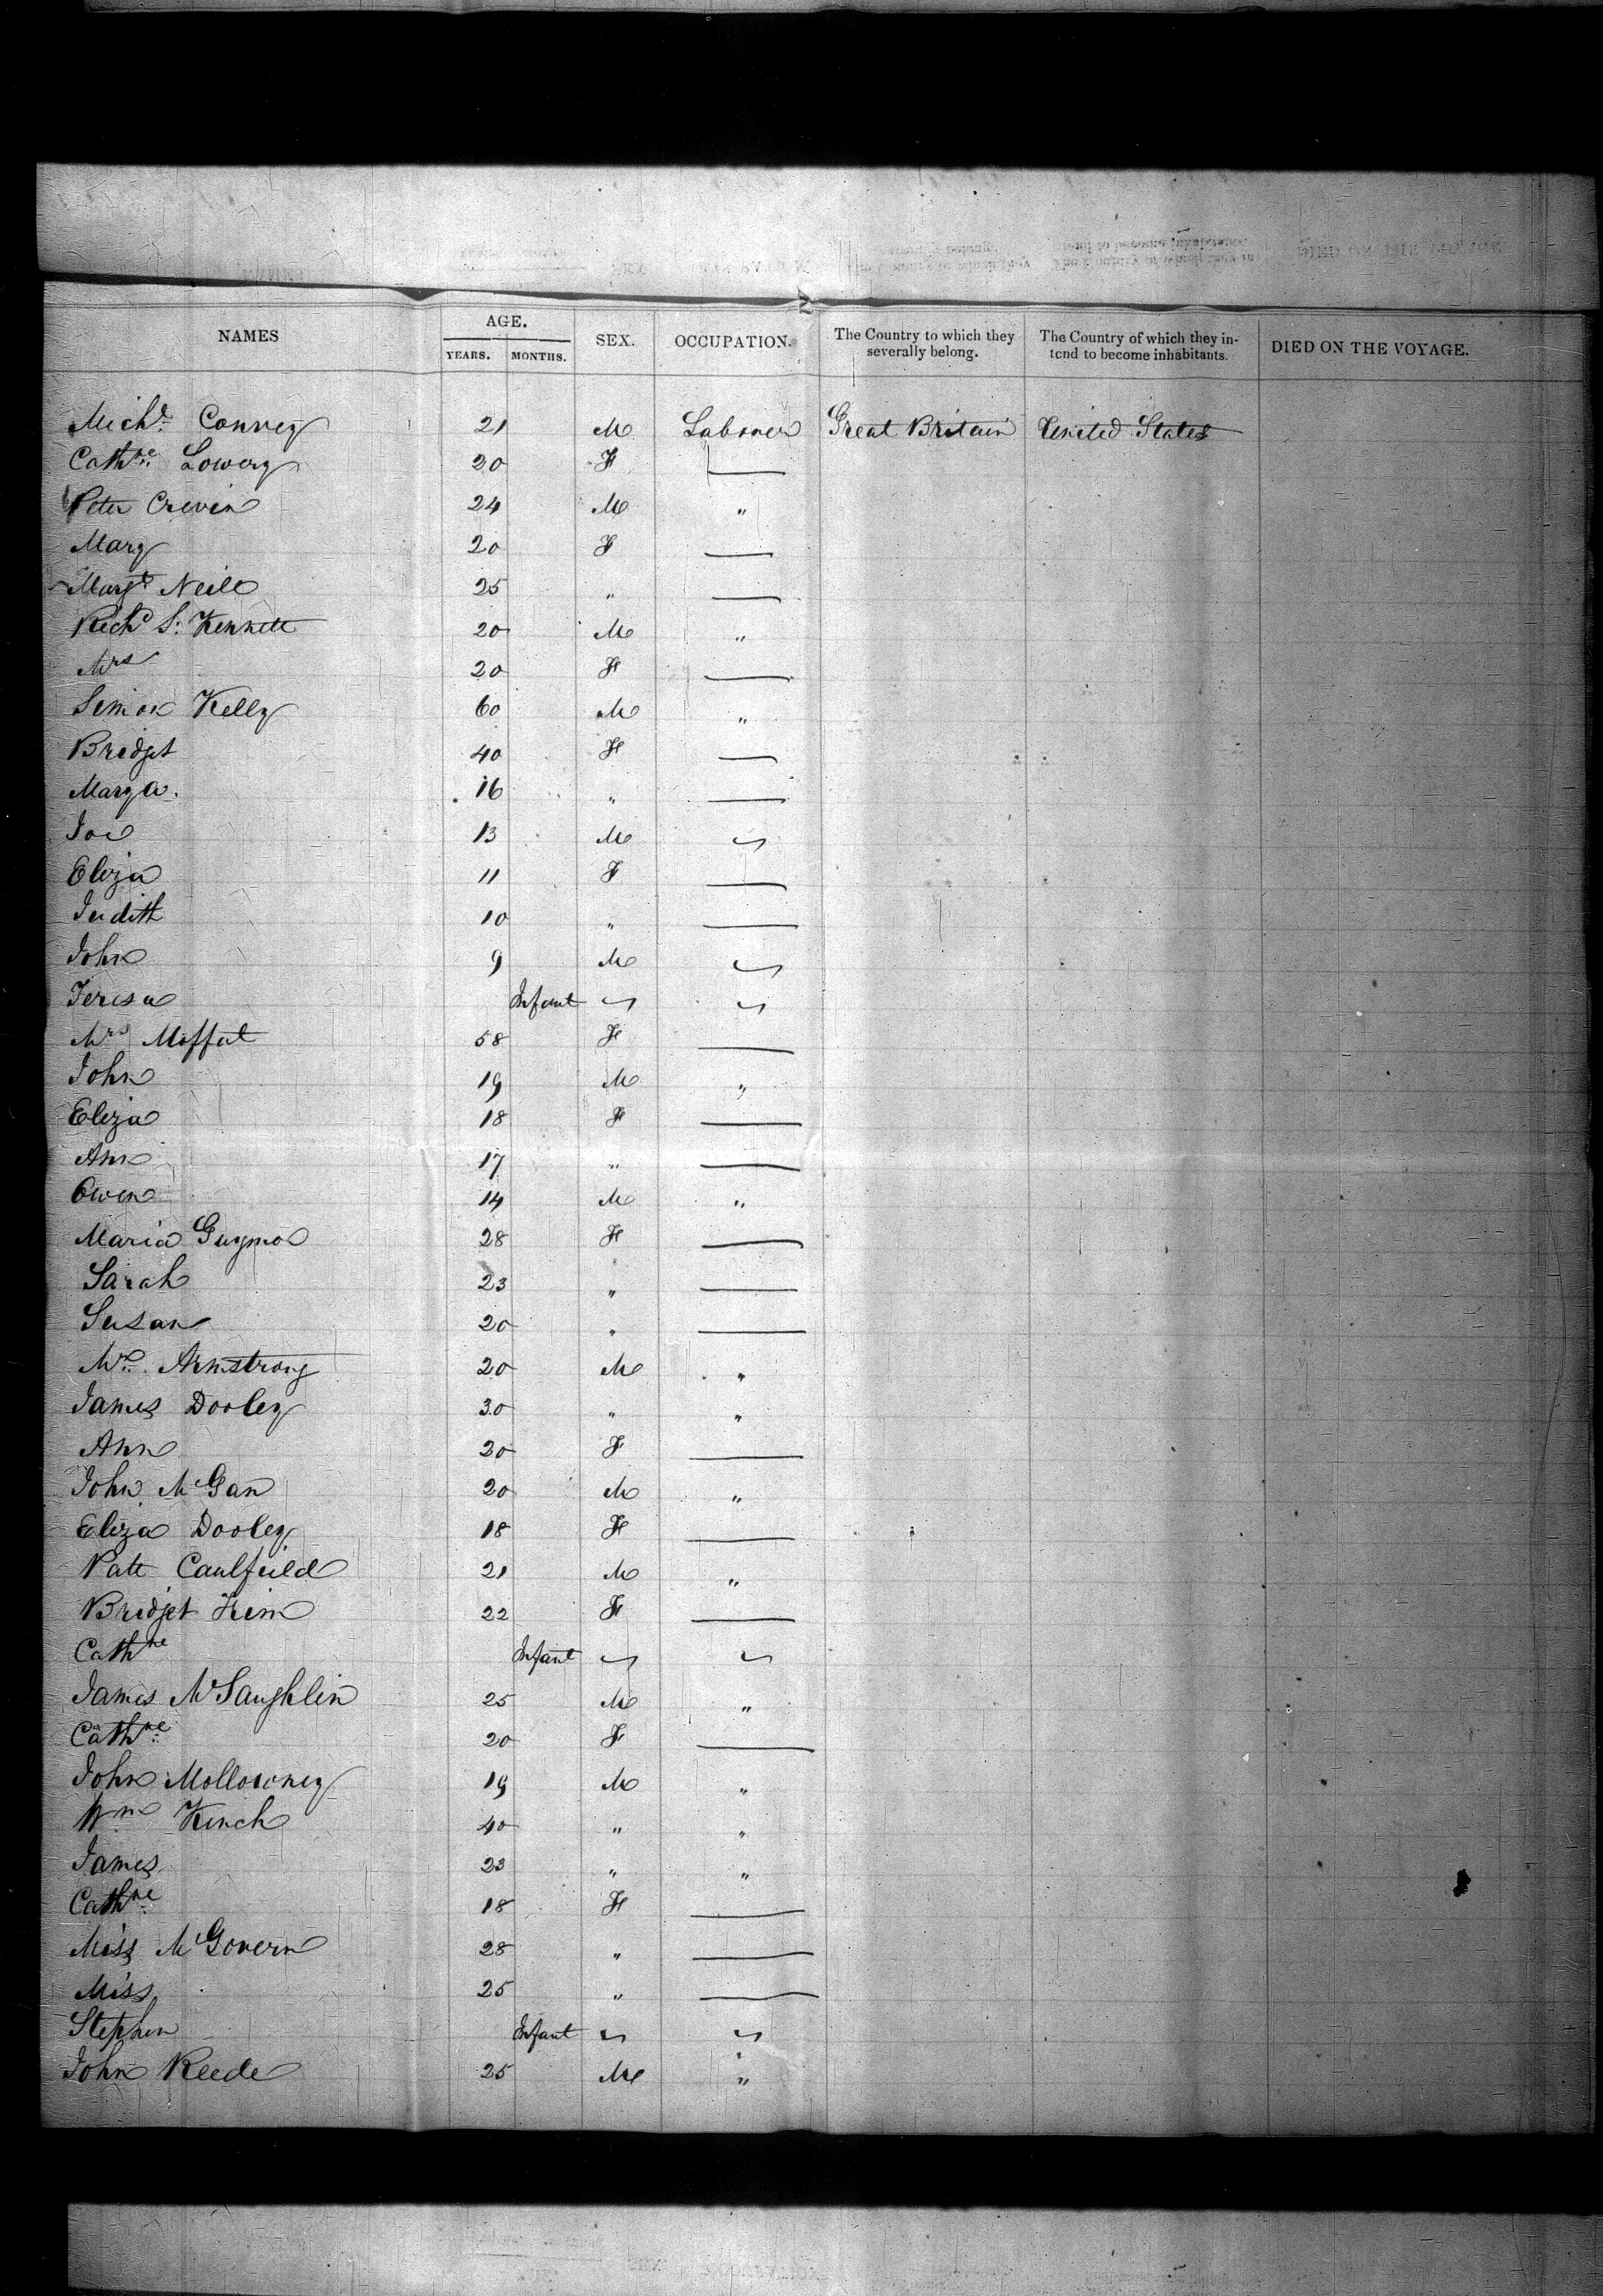 NAMES AGE. YEARS. MONTHS. SEX. OCCUPATION. The Country to which they severally belong. The Country of which they intend to become inhabitants. DIED ON THE VOYAGE.
Mich.l Convey 21 M Laborer Great Britain United States
Cath.ne Lowery 20 F —
Peter Crevin 24 M "
Mary 20 F —
Margt Neill 25 " —
Richd S. Kennett 20 M "
Mrs 20 F —
Simon Kelly 60 M "
Bridget 40 F —
Marga. 16 " —
Joe 13 M ~
Eliza 11 F —
Judith 10 " —
John 9 M ~
Teresa Infant ~ ~
Mrs Moffat 58 F —
John 19 M "
Eliza 18 F —
Ann 17 " —
Owen 14 M "
Maria Guymo 28 F —
Sarah 23 " —
Susan 20 " —
Armstrong 20 M "
James Dooley 30 " "
Ann 20 F —
John McGan 20 M "
Eliza Dooley 18 F —
Patt Caulfield 21 M "
Bridget 22 F —
Cathne Infant ~ ~
James McLaughlin 25 M "
Cathne 20 F —
John Mollowney 19 M "
Wm Kinch 40 " "
James 23 " "
Cathne 18 F —
Miss McGovern 28 " —
Miss 25 " —
Stephen Infant ~ ~
John Reede 25 M "